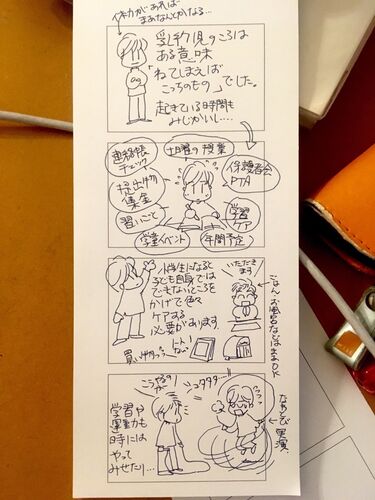 体力があれば
まあなんとかなる…
乳幼児のころは
ある意味
ねてしまえば
こっちのもの」でした。
起きている時間も
みじかいし…
連絡帳
チェック
土曜の授業
保護者会
PTA
提出物
集金
習いごと
学習
ケア
学童イベント
年間予定
小学生になると
子ども自身では
できないところを
かげで色々
ケアする
必要があります
いただきます
ごはん、お風呂などはまあOK
ノート
買い
学習や
運動も
時には
やって
みせたり…
こうやるの
コツ
なわとび
実演